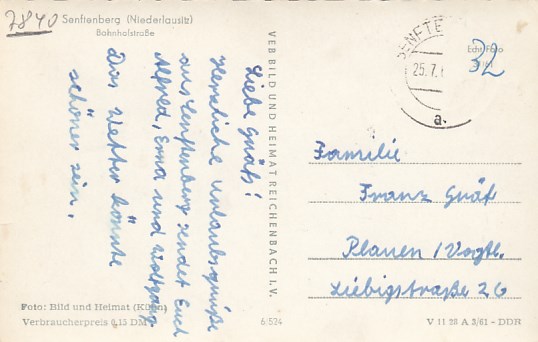 7840
Senftenberg (Niederlausitz)
Bahnhofstraße
Liebe Gräfs!
Herzliche Urlaubsgrüße
aus Senftenberg sendet Euch
Alfred, Erna und Wolfgang
Das Wetter könnte
schöner sein.
Foto: Bild und Heimat (Kühn)
Verbraucherpreis 0,15 DM
VEB BILD UND HEIMAT REICHENBACH I.V.
6/524
SENFTE
25.7.
a
Echt Foto
32
Familie
Franz Gräf
Plauen / Vogtl.
Liebigstraße 26
V 11 28 A 2/61 - DDR